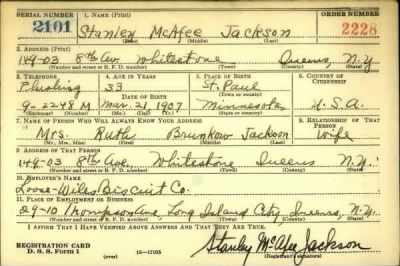 SERIAL NUMBER 1. NAME (Print) ORDER NUMBER
2101 Stanley McAfee Jackson 2228
(First) (Middle) (Last)
2. ADDRESS (Print)
149-03 8th Av. Whitestone Queens, N.Y.
(Number and street or R. F. D. number) (Town) (County) (State)
3. TELEPHONE 4. AGE IN YEARS 5. PLACE OF BIRTH 6. COUNTRY OF CITIZENSHIP
Flushing 33 St. Paul
DATE OF BIRTH (Town or county)
9-2248 M Mar. 21, 1907 Minnesota U.S.A.
(Exchange) (Number) (Mo.) (Day) (Yr.) (State or country)
7. NAME OF PERSON WHO WILL ALWAYS KNOW YOUR ADDRESS 8. RELATIONSHIP OF THAT PERSON
Mrs. Ruth Brunkow Jackson Wife
(Mr., Mrs., Miss) (First) (Middle) (Last)
9. ADDRESS OF THAT PERSON
149-03 8th Ave., Whitestone Queens N.Y.
(Number and street or R. F. D. number) (Town) (County) (State)
10. EMPLOYER'S NAME
Loose-Wiles Biscuit Co.
11. PLACE OF EMPLOYMENT OR BUSINESS
29-10 Thompson Ave, Long Island City, Queens, N.Y.
(Number and street or R. F. D. number) (Town) (County) (State)
I AFFIRM THAT I HAVE VERIFIED ABOVE ANSWERS AND THAT THEY ARE TRUE.
REGISTRATION CARD
D. S. S. Form 1 16-17105 Stanley McAfee Jackson
(Registrant's signature)